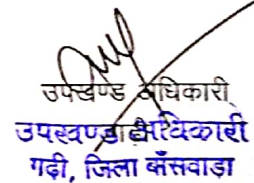 उपखण्ड अधिकारी
उपखण्ड अधिकारी
गढ़ी, जिला बाँसवाड़ा